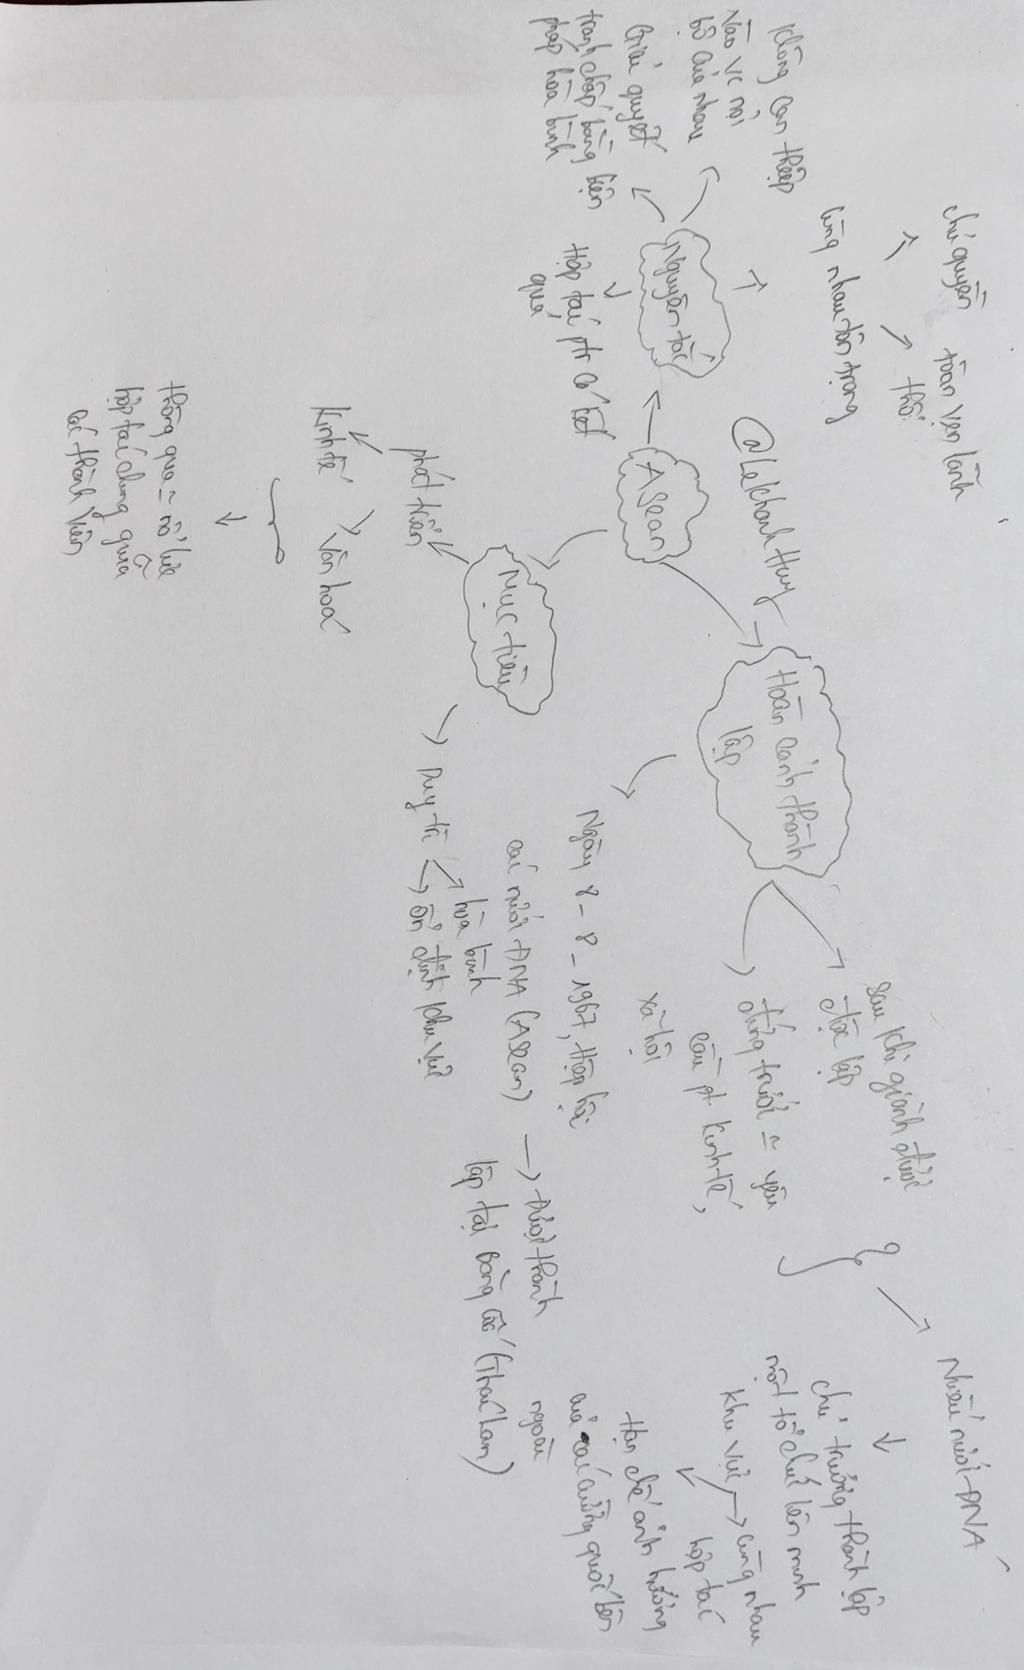 Asean
@LeKhanhHuy
Nguyên tắc
cùng nhau tôn trọng
chủ quyền
toàn vẹn lãnh
thổ
Không can thiệp
vào vc nội
bộ của nhau
Giải quyết
tranh chấp bằng biện
pháp hòa bình
Hợp tác ptr có kết
quả
Hoàn cảnh thành
lập
sau khi giành được
độc lập
đứng trước = yêu
cầu pt kinh tế,
xã hội
Nhiều nước ĐNA
chủ trương thành lập
một tổ chức liên minh
khu vực
cùng nhau
hợp tác
Hạn chế ảnh hưởng
của các cường quốc bên
ngoài
Ngày 8 - 8 - 1967, Hiệp hội
các nước ĐNA (Asean)
được thành
lập tại Băng Cốc (Thái Lan)
Mục tiêu
phát triển
Kinh tế
Văn hoá
thông qua = nỗ lực
hợp tác chung giữa
các thành viên
Duy trì
hòa bình
ổn định khu vực